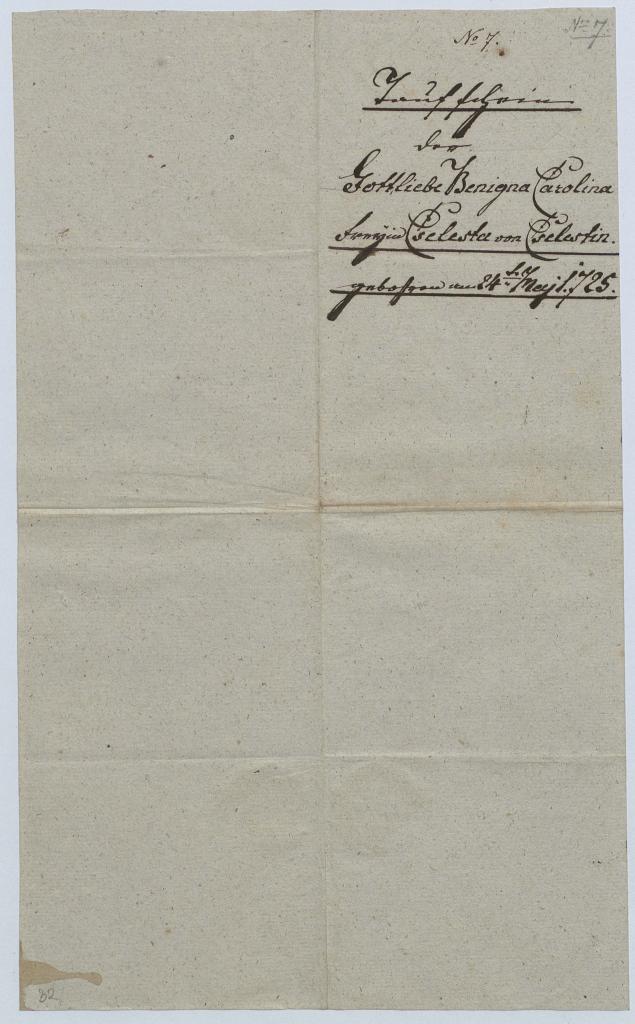 Nro 7.
No 7.
Taufschein
der
Gottliebe Benigna Carolina
freyin Cselesta von Cselestin.
gebohren am 24ten Maj 1725.
32